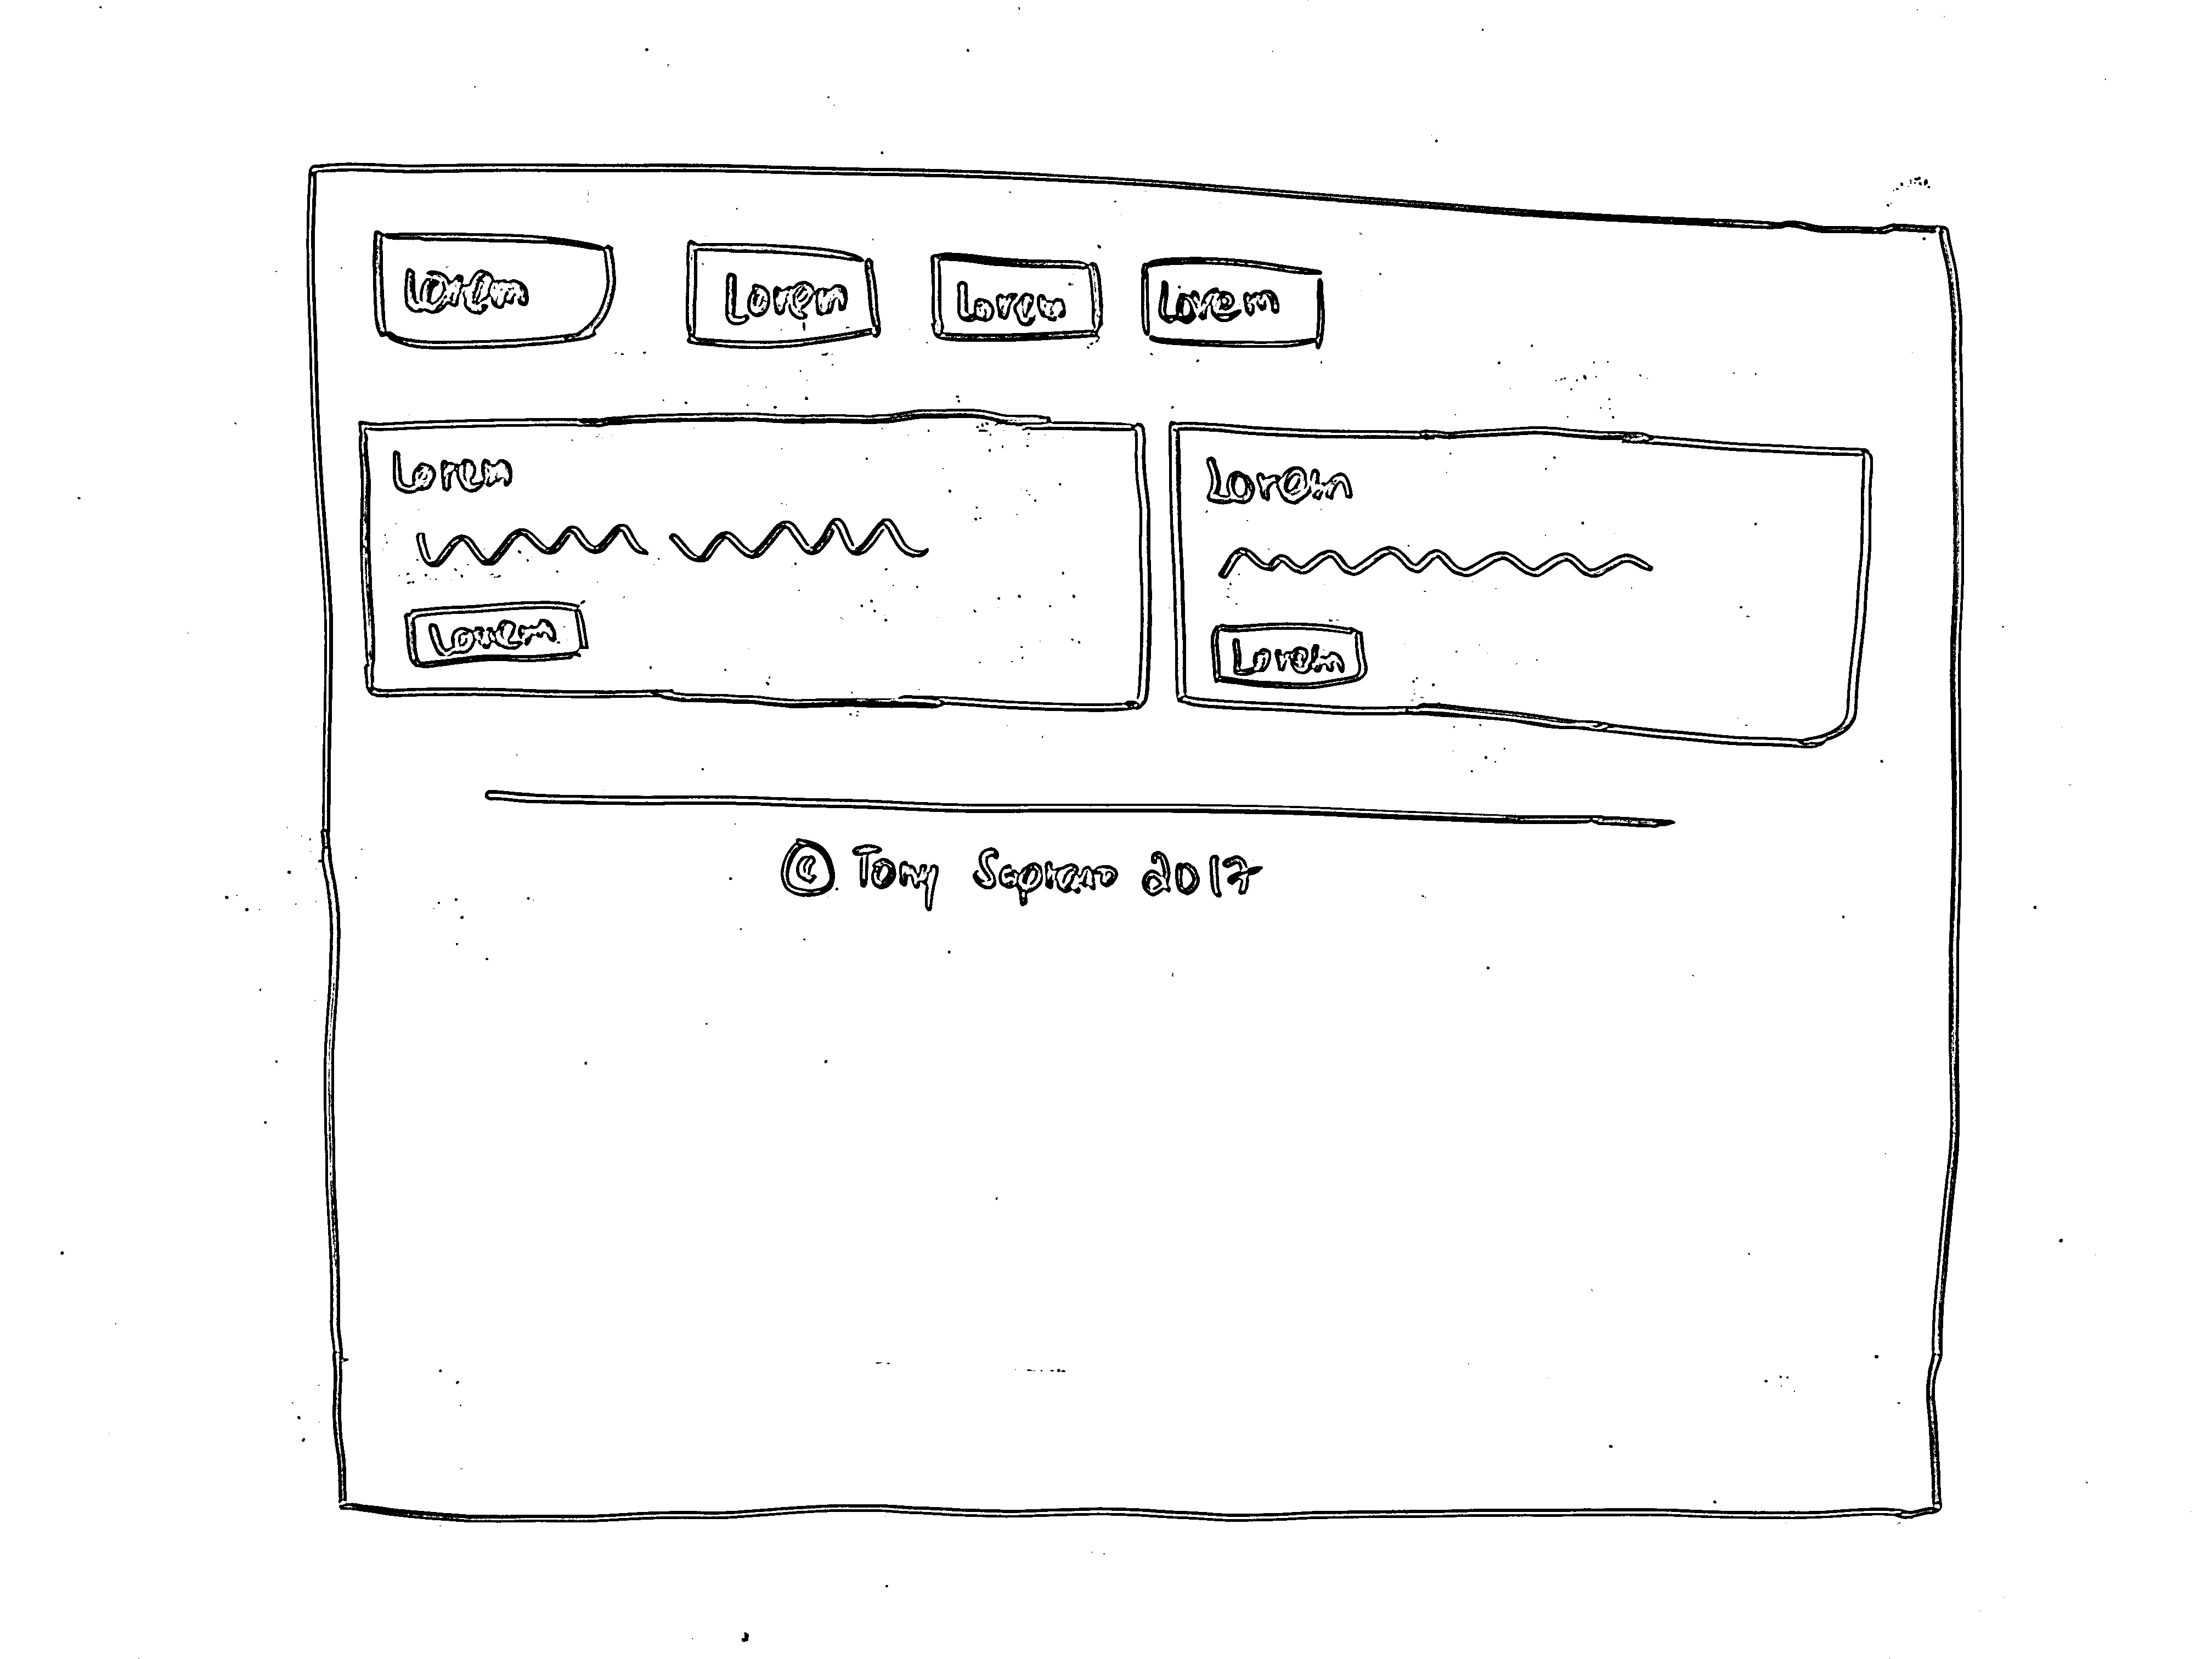 Lorem Lorem Lorem Lorem
Lorem Lorem
Lorem Lorem
© Tony Soprano 2017